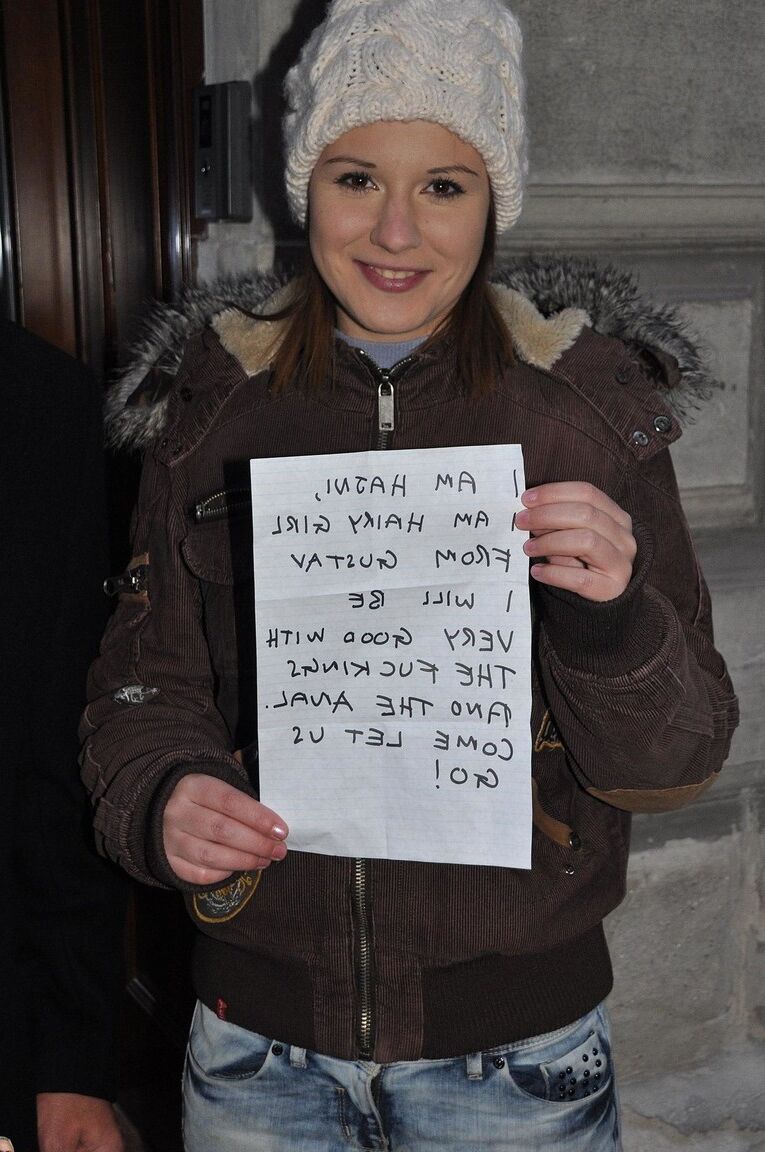 I AM HAJNI,
I AM HAIRY GIRL
FROM GUSTAV
I WILL BE
VERY GOOD WITH
THE FUCKINGS
AND THE ANAL.
COME LET US
GO!